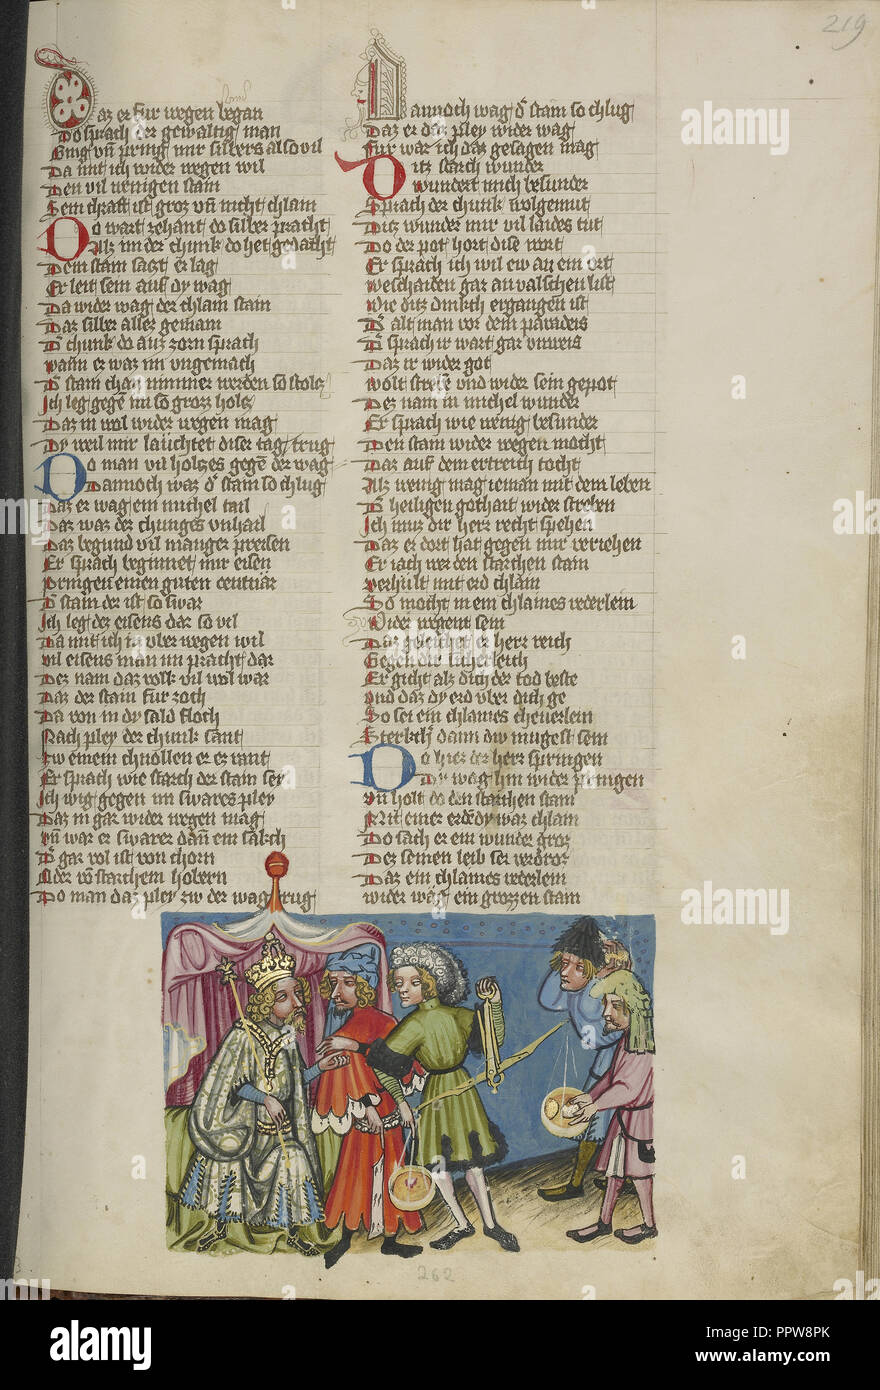 219
Daz er fur wegen began
Do sprach der gewaltig man
Ging vn̄ pring mir silbers also vil
Da mit ich wider wegen wil
Den vil wenigen stain
Sein chraft ist groz vn̄ nicht chlain
Do wart zehant do silber pracht
Alz im der chunk do het gedacht
Dem stain sagt er lag
Er leit sein auf dy wag
Da wider wag der chlain stain
Daz silber allez gemain
Dˢ chunk do auz zorn sprach
wann er waz im vngemach
Dˢ stain chan nimmer werden so stolcz
Ich leg gegē im so groz holcz
Daz in wol wider wegen mag
Dy weil mir lauchtet diser tag trug
Do man vil holtzes gegē der wag
Dannoch waz dˢ stain so chlug
Daz er wag ein michel tail
Daz waz der chunges vnhail
Daz begund vil manger preisen
Er sprach beginnet mir eisen
Pringen einen guten centnar
Dˢ stain der ist so swar
Ich leg dez eisens dar so vil
Da mit ich in vber wegen wil
Vil eisens man im pracht dar
Dez nam daz volk vil wol war
Daz der stain fur zoch
Da von in dy sald floch
Nach pley der chunk sant
Er sprach wie starch der stain sey
Ich wig gegen im swarez pley
Daz in gar wider wegen mag
vn̄ war er swarer dann ein sakch
Dˢ gar vol ist von chorn
Oder vō starchem hobern
Do man daz pley zw der wag trug
Dannoch wag dˢ stain so chlug
Daz er daz pley wider wag
Fur war ich daz gesagen mag
Ditz starch wunder
wundert mich besunder
Sprach der chunk wolgemut
Ditz wunder mir vil laides tut
Do der pot hort dise wort
Er sprach ich wil ew an ein ort
Weschaiden gar an valschen list
Wie ditz dinkch ergangen ist
Dˢ alt man vor dem paradeis
Dˢ sprach ir wart gar vnweis
Daz ir wider got
Wolt streben vnd wider sein gepot
Dez nam in michel wunder
Er sprach wie wenig besunder
Den stain wider wegen mocht
Daz auf dem ertreich tocht
Alz wenig mag ieman mit dem leben
Dˢ heiligen gothait wider streben
Ich muz dir herr recht spehen
Daz er dort hat gegen mir veriehen
Er iach wer den starchen stain
Verhult mit erd chlain
So mocht in ein chlaines vederlein
Wider wegent sein
Daz geleichet er herr reich
Gegen dir
Er gicht alz dich der tod beste
Vnd daz dy erd vber dich ge
So sei ein chlaines
Sterkch dann dw mugest sein
Do hiez der herr springen
Dy wag hin wider pringen
vn̄ holt do den starchen stain
Mit einer erde dy waz chlain
Do sach er ein wunder groz
Dez seinen leib ser verdroz
Daz ein chlaines vederlein
wider wag ein grozzen stain
262
alamy
alamy
Image ID: PPW8PK
www.alamy.com